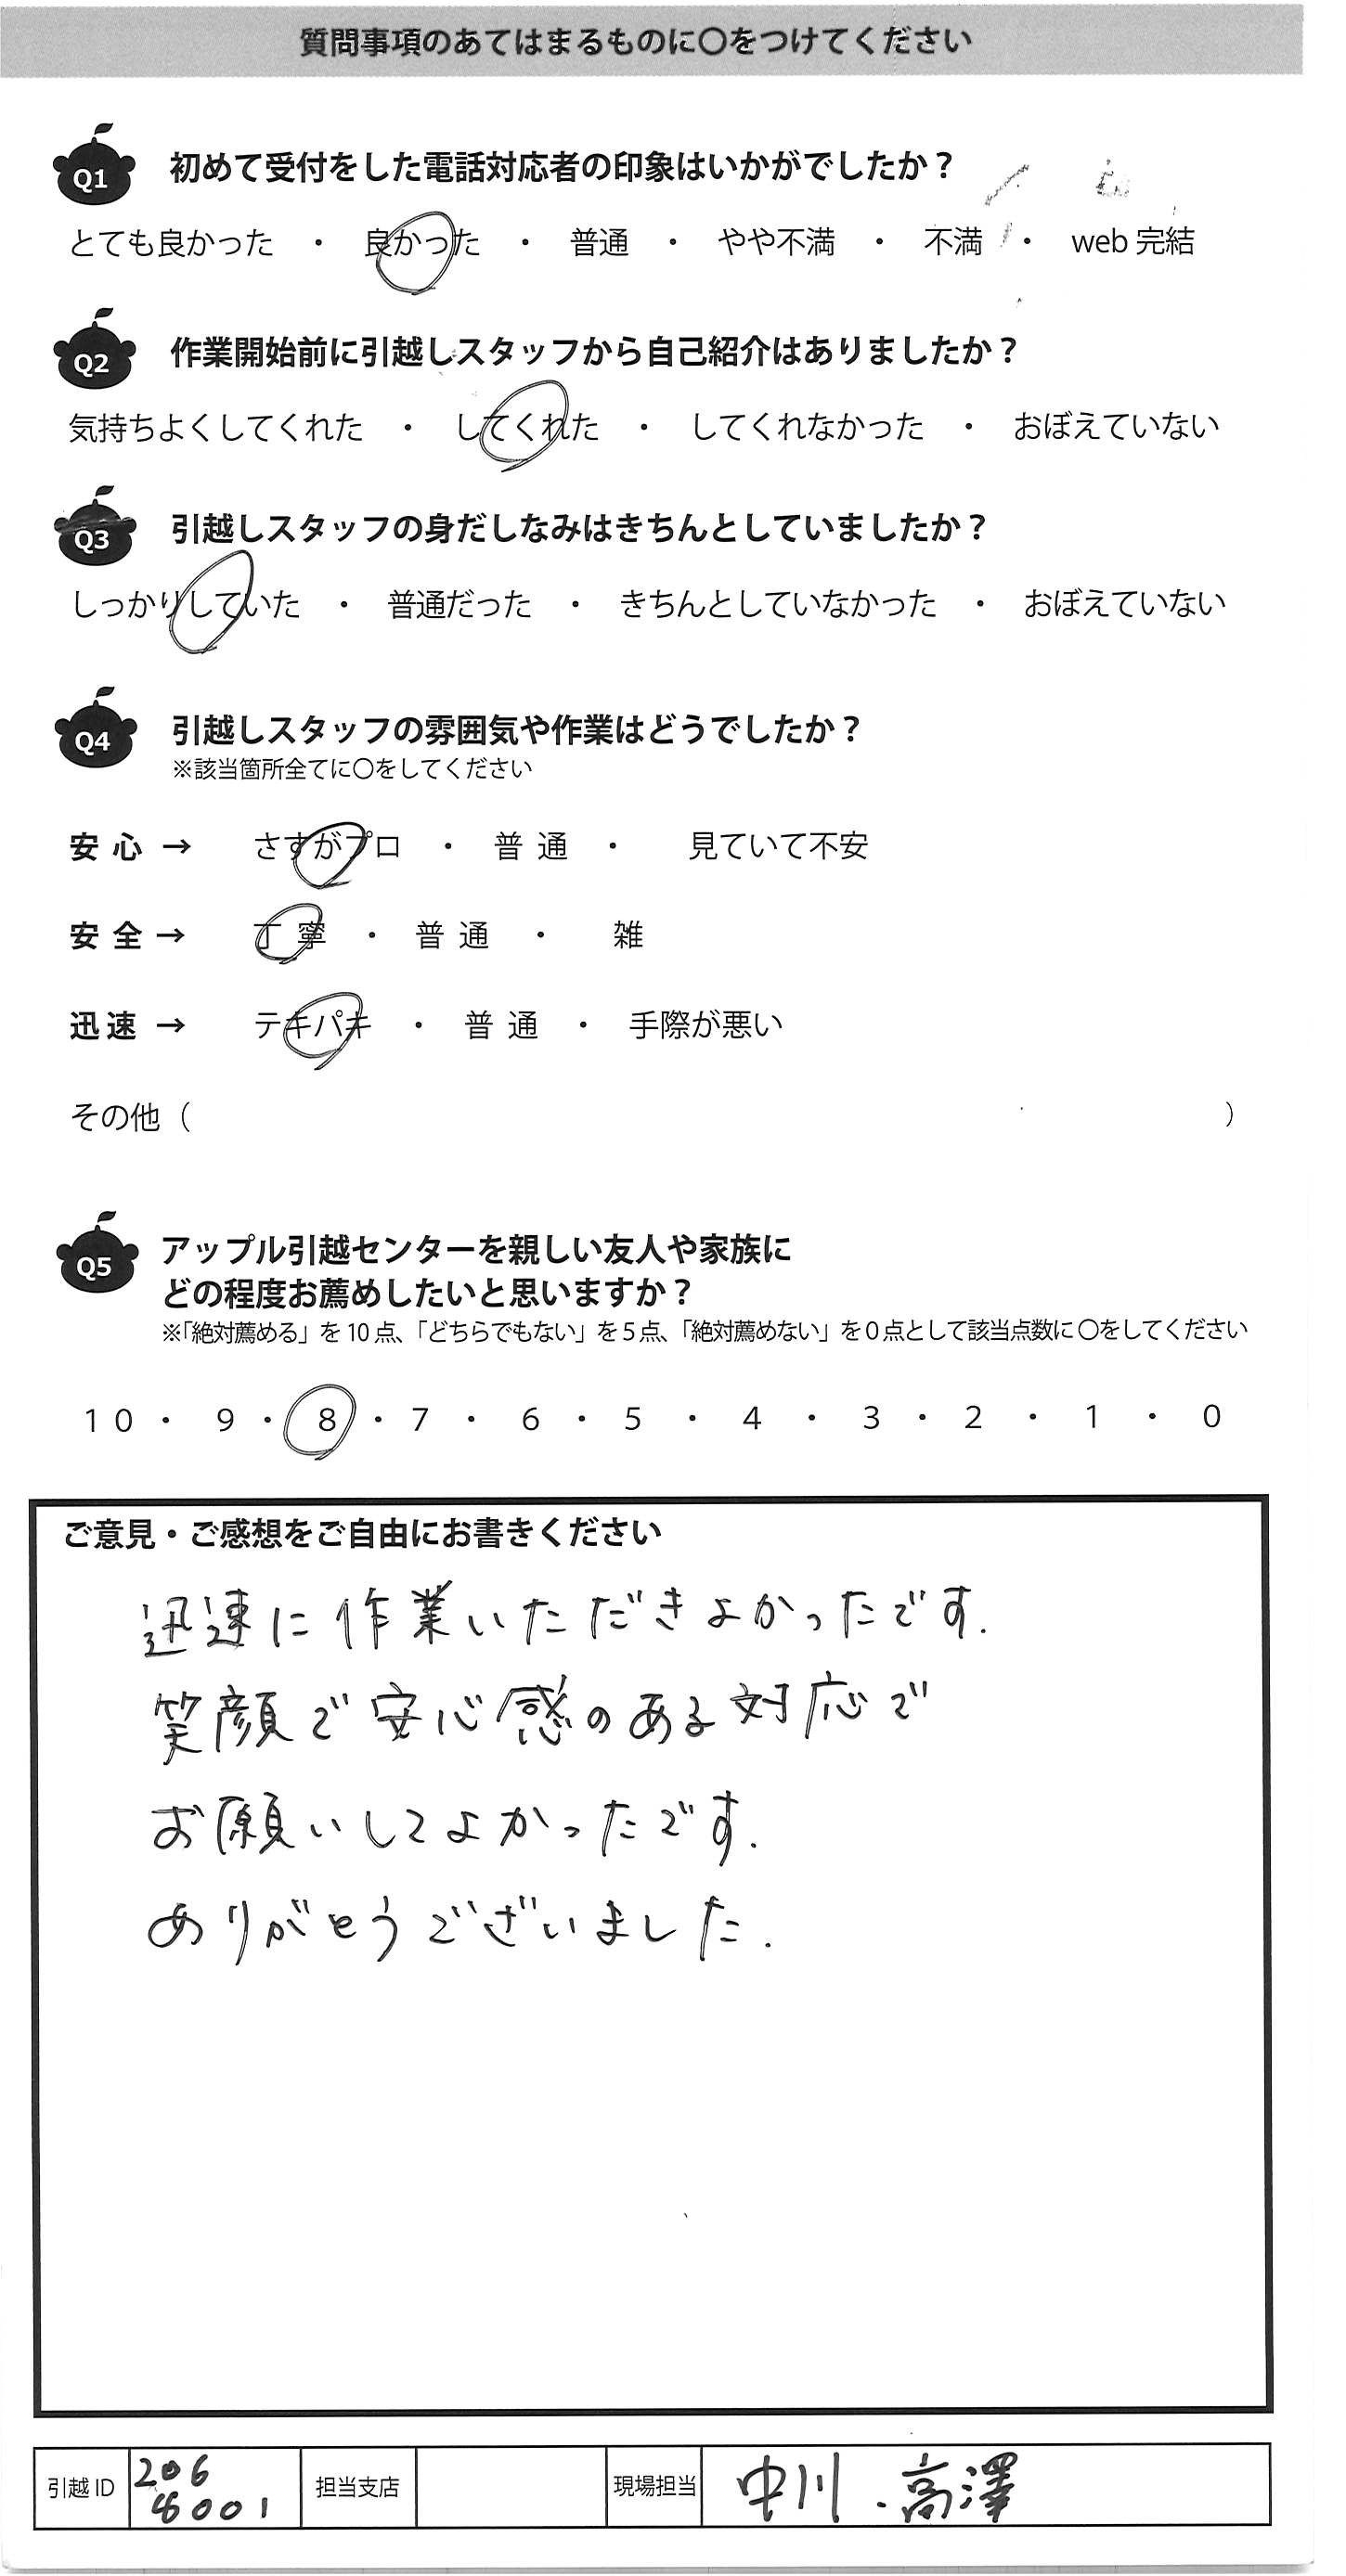 質問事項のあてはまるものに〇をつけてください
Q1 初めて受付をした電話対応者の印象はいかがでしたか？
とても良かった ・ 良かった ・ 普通 ・ やや不満 ・ 不満 ・ web完結
Q2 作業開始前に引越しスタッフから自己紹介はありましたか？
気持ちよくしてくれた ・ してくれた ・ してくれなかった ・ おぼえていない
Q3 引越しスタッフの身だしなみはきちんとしていましたか？
しっかりしていた ・ 普通だった ・ きちんとしていなかった ・ おぼえていない
Q4 引越しスタッフの雰囲気や作業はどうでしたか？
※該当箇所全てに〇をしてください
安心 → さすがプロ ・ 普通 ・ 見ていて不安
安全 → 丁寧 ・ 普通 ・ 雑
迅速 → テキパキ ・ 普通 ・ 手際が悪い
その他（ ）
Q5 アップル引越センターを親しい友人や家族に
どの程度お薦めしたいと思いますか？
※「絶対薦める」を10点、「どちらでもない」を5点、「絶対薦めない」を0点として該当点数に〇をしてください
10 ・ 9 ・ 8 ・ 7 ・ 6 ・ 5 ・ 4 ・ 3 ・ 2 ・ 1 ・ 0
ご意見・ご感想をご自由にお書きください
迅速に作業いただきよかったです.
笑顔で安心感のある対応で
お願いしてよかったです.
ありがとうございました.
引越ID 206 担当支店 現場担当 中川.高澤